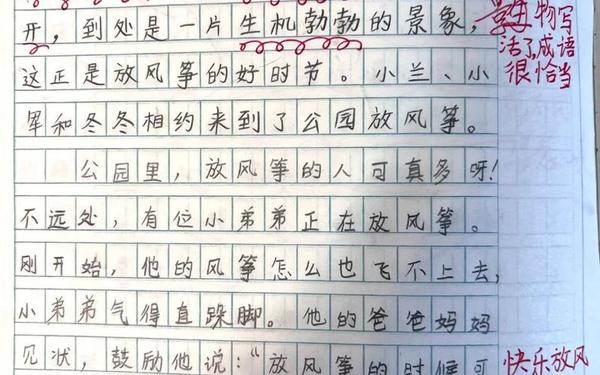 开，到处是一片生机勃勃的景象，
这正是放风筝的好时节。小兰、小
军和冬冬相约来到了公园放风筝。
公园里，放风筝的人可真多呀！
不远处，有位小弟弟正在放风筝。
刚开始，他的风筝怎么也飞不上去，
小弟弟气得直跺脚。他的爸爸妈妈
见状，鼓励他说：“放风筝的时候可
物写
活了，成语
很恰当
快乐放风